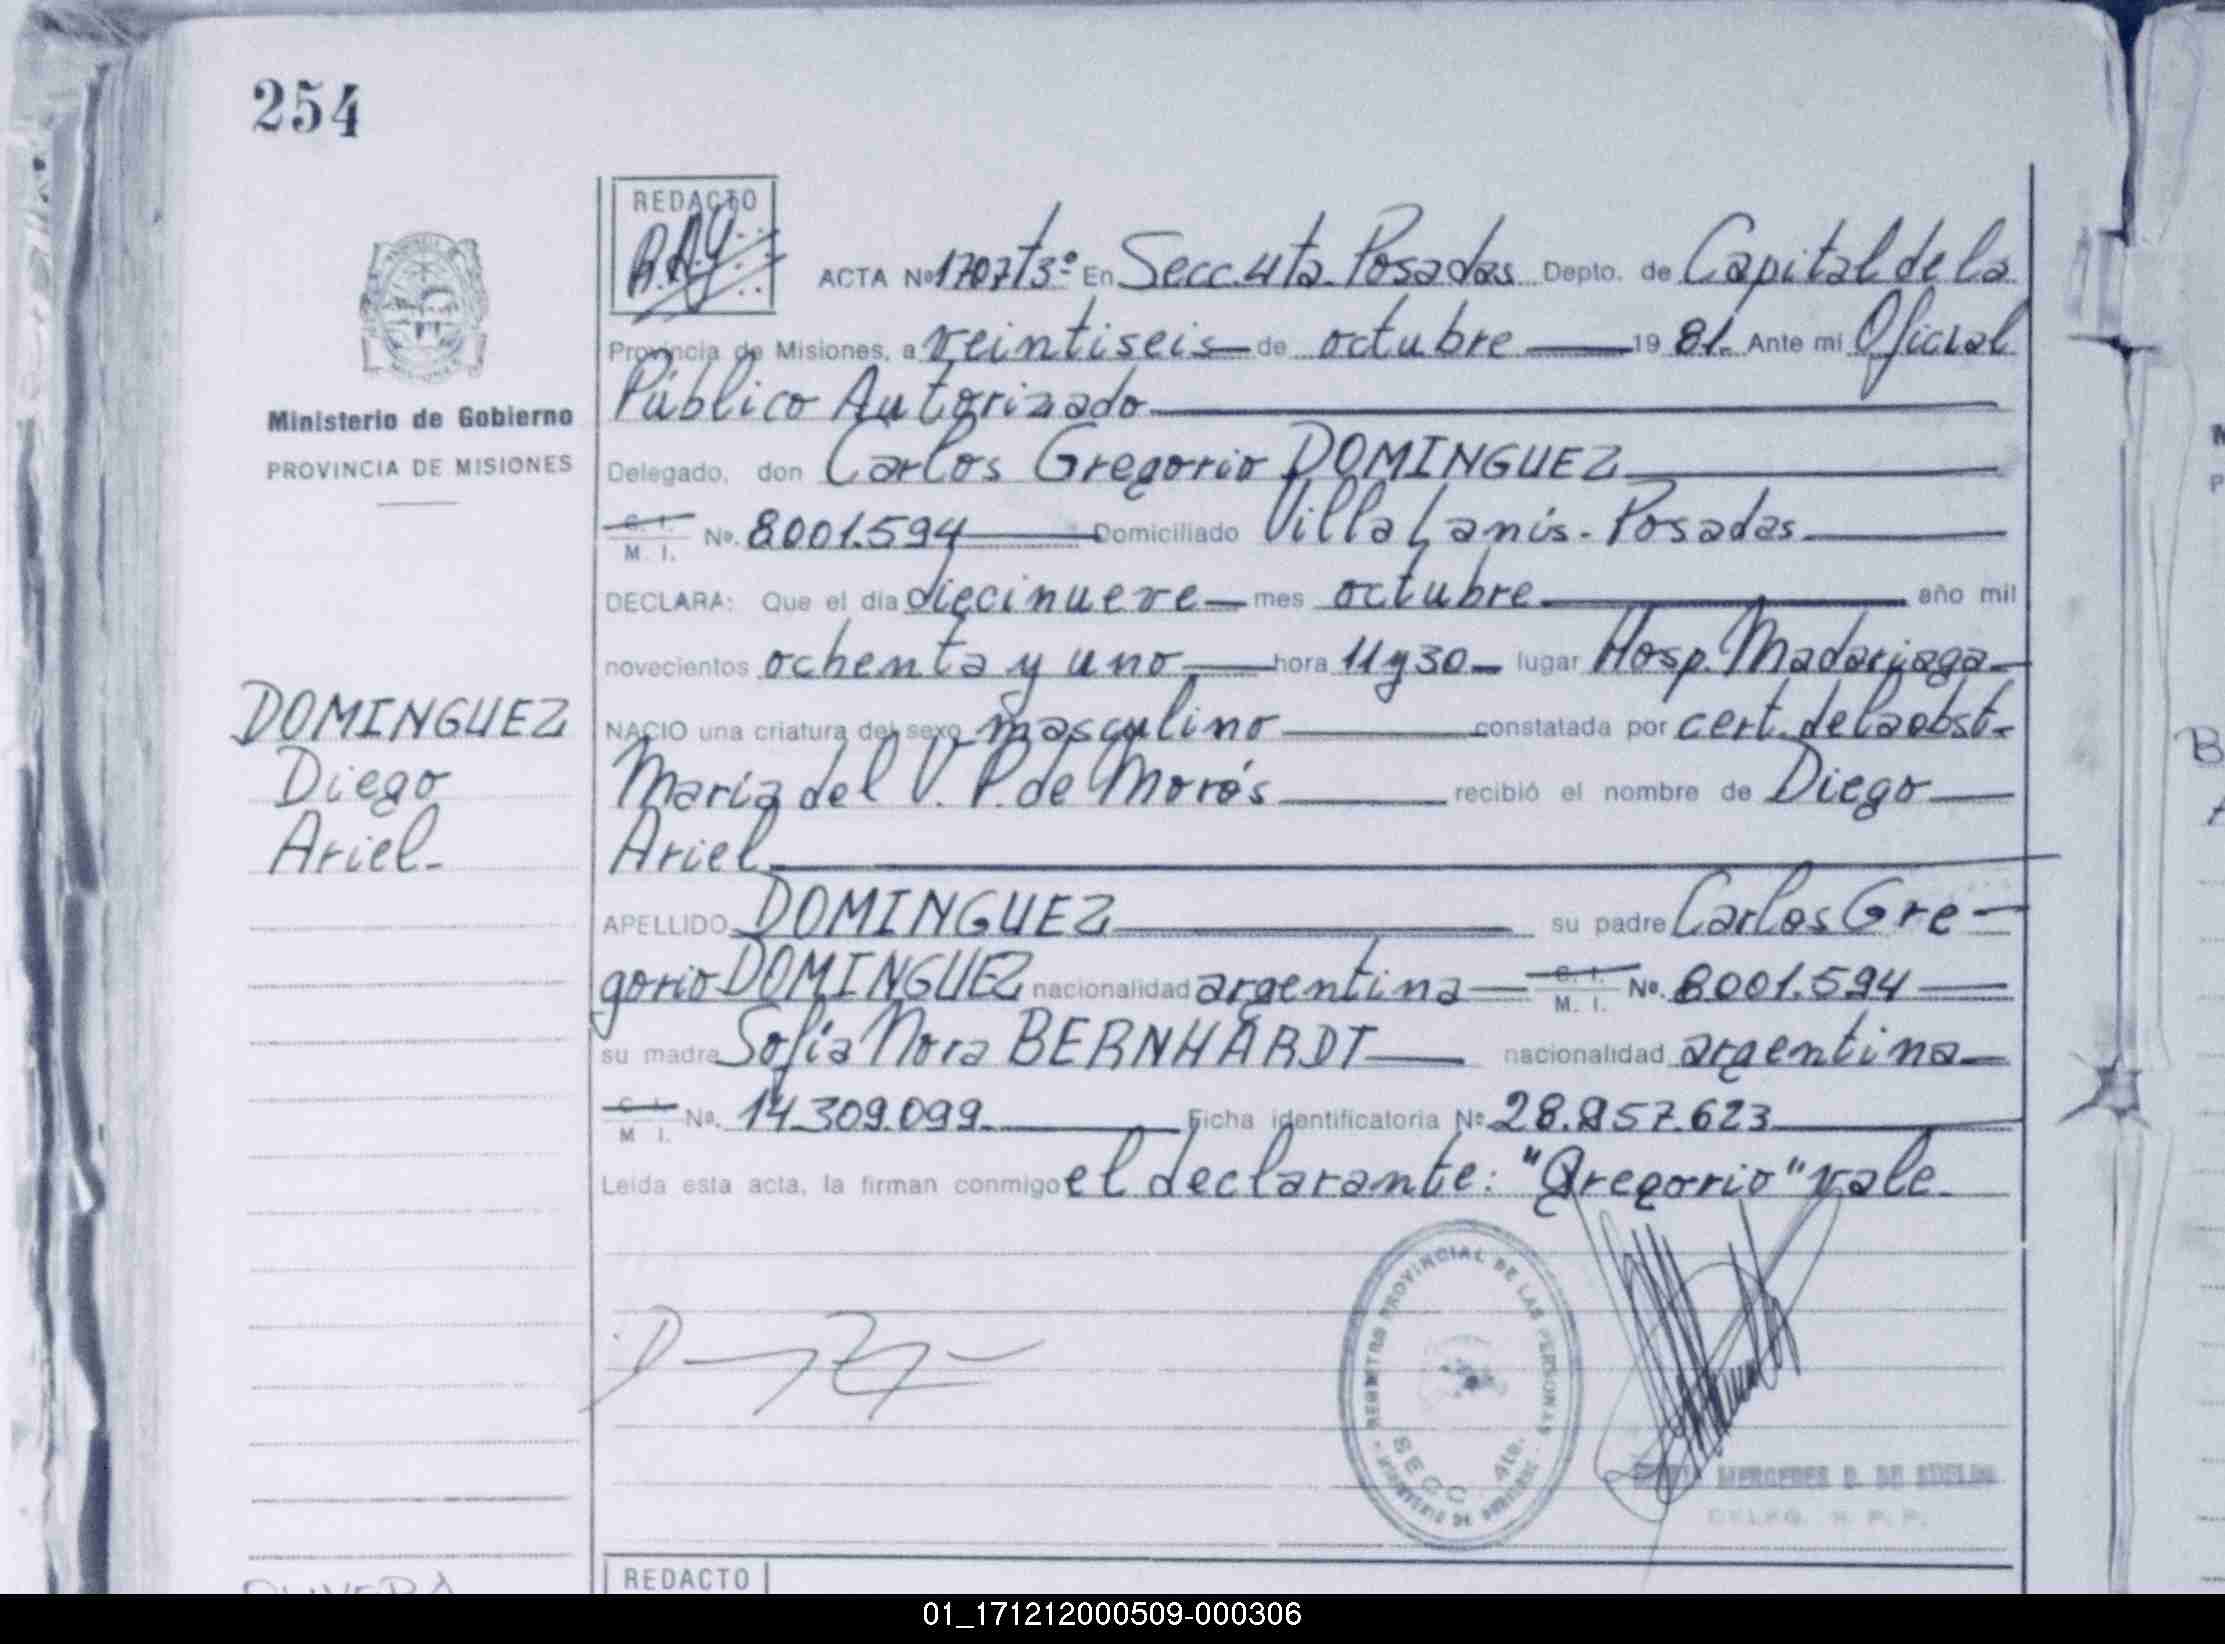 254
REDACTO
B.A.G.
ACTA Nº 1707 Tº 3º En Secc. 4ta. Posadas Depto. de Capital de la
Provincia de Misiones, a veintiseis de octubre 1981. Ante mi Oficial
Público Autorizado
Ministerio de Gobierno
PROVINCIA DE MISIONES
Delegado, don Carlos Gregorio DOMINGUEZ
C. I. M. I. Nº. 8001.594 Domiciliado Villa Lanús - Posadas
DECLARA: Que el día diecinueve mes octubre año mil
novecientos ochenta y uno hora 11 y 30 lugar Hosp. Madariaga
DOMINGUEZ
Diego
Ariel.
NACIO una criatura del sexo masculino constatada por cert. de la obst.
María del V. P. de Morás recibió el nombre de Diego
Ariel
APELLIDO DOMINGUEZ su padre Carlos Gre-
gorio DOMINGUEZ nacionalidad argentina C. I. M. I. Nº. 8001.594
su madre Sofía Nora BERNHARDT nacionalidad argentina
C. I. M. I. Nº. 14.309.099. Ficha identificatoria Nº 28.857.623
Leída esta acta, la firman conmigo el declarante: "Gregorio" vale.
REGISTRO PROVINCIAL DE LAS PERSONAS
SECC. 4ta.
MINISTERIO DE GOBIERNO
MERCEDES
REDACTO
01_171212000509-000306